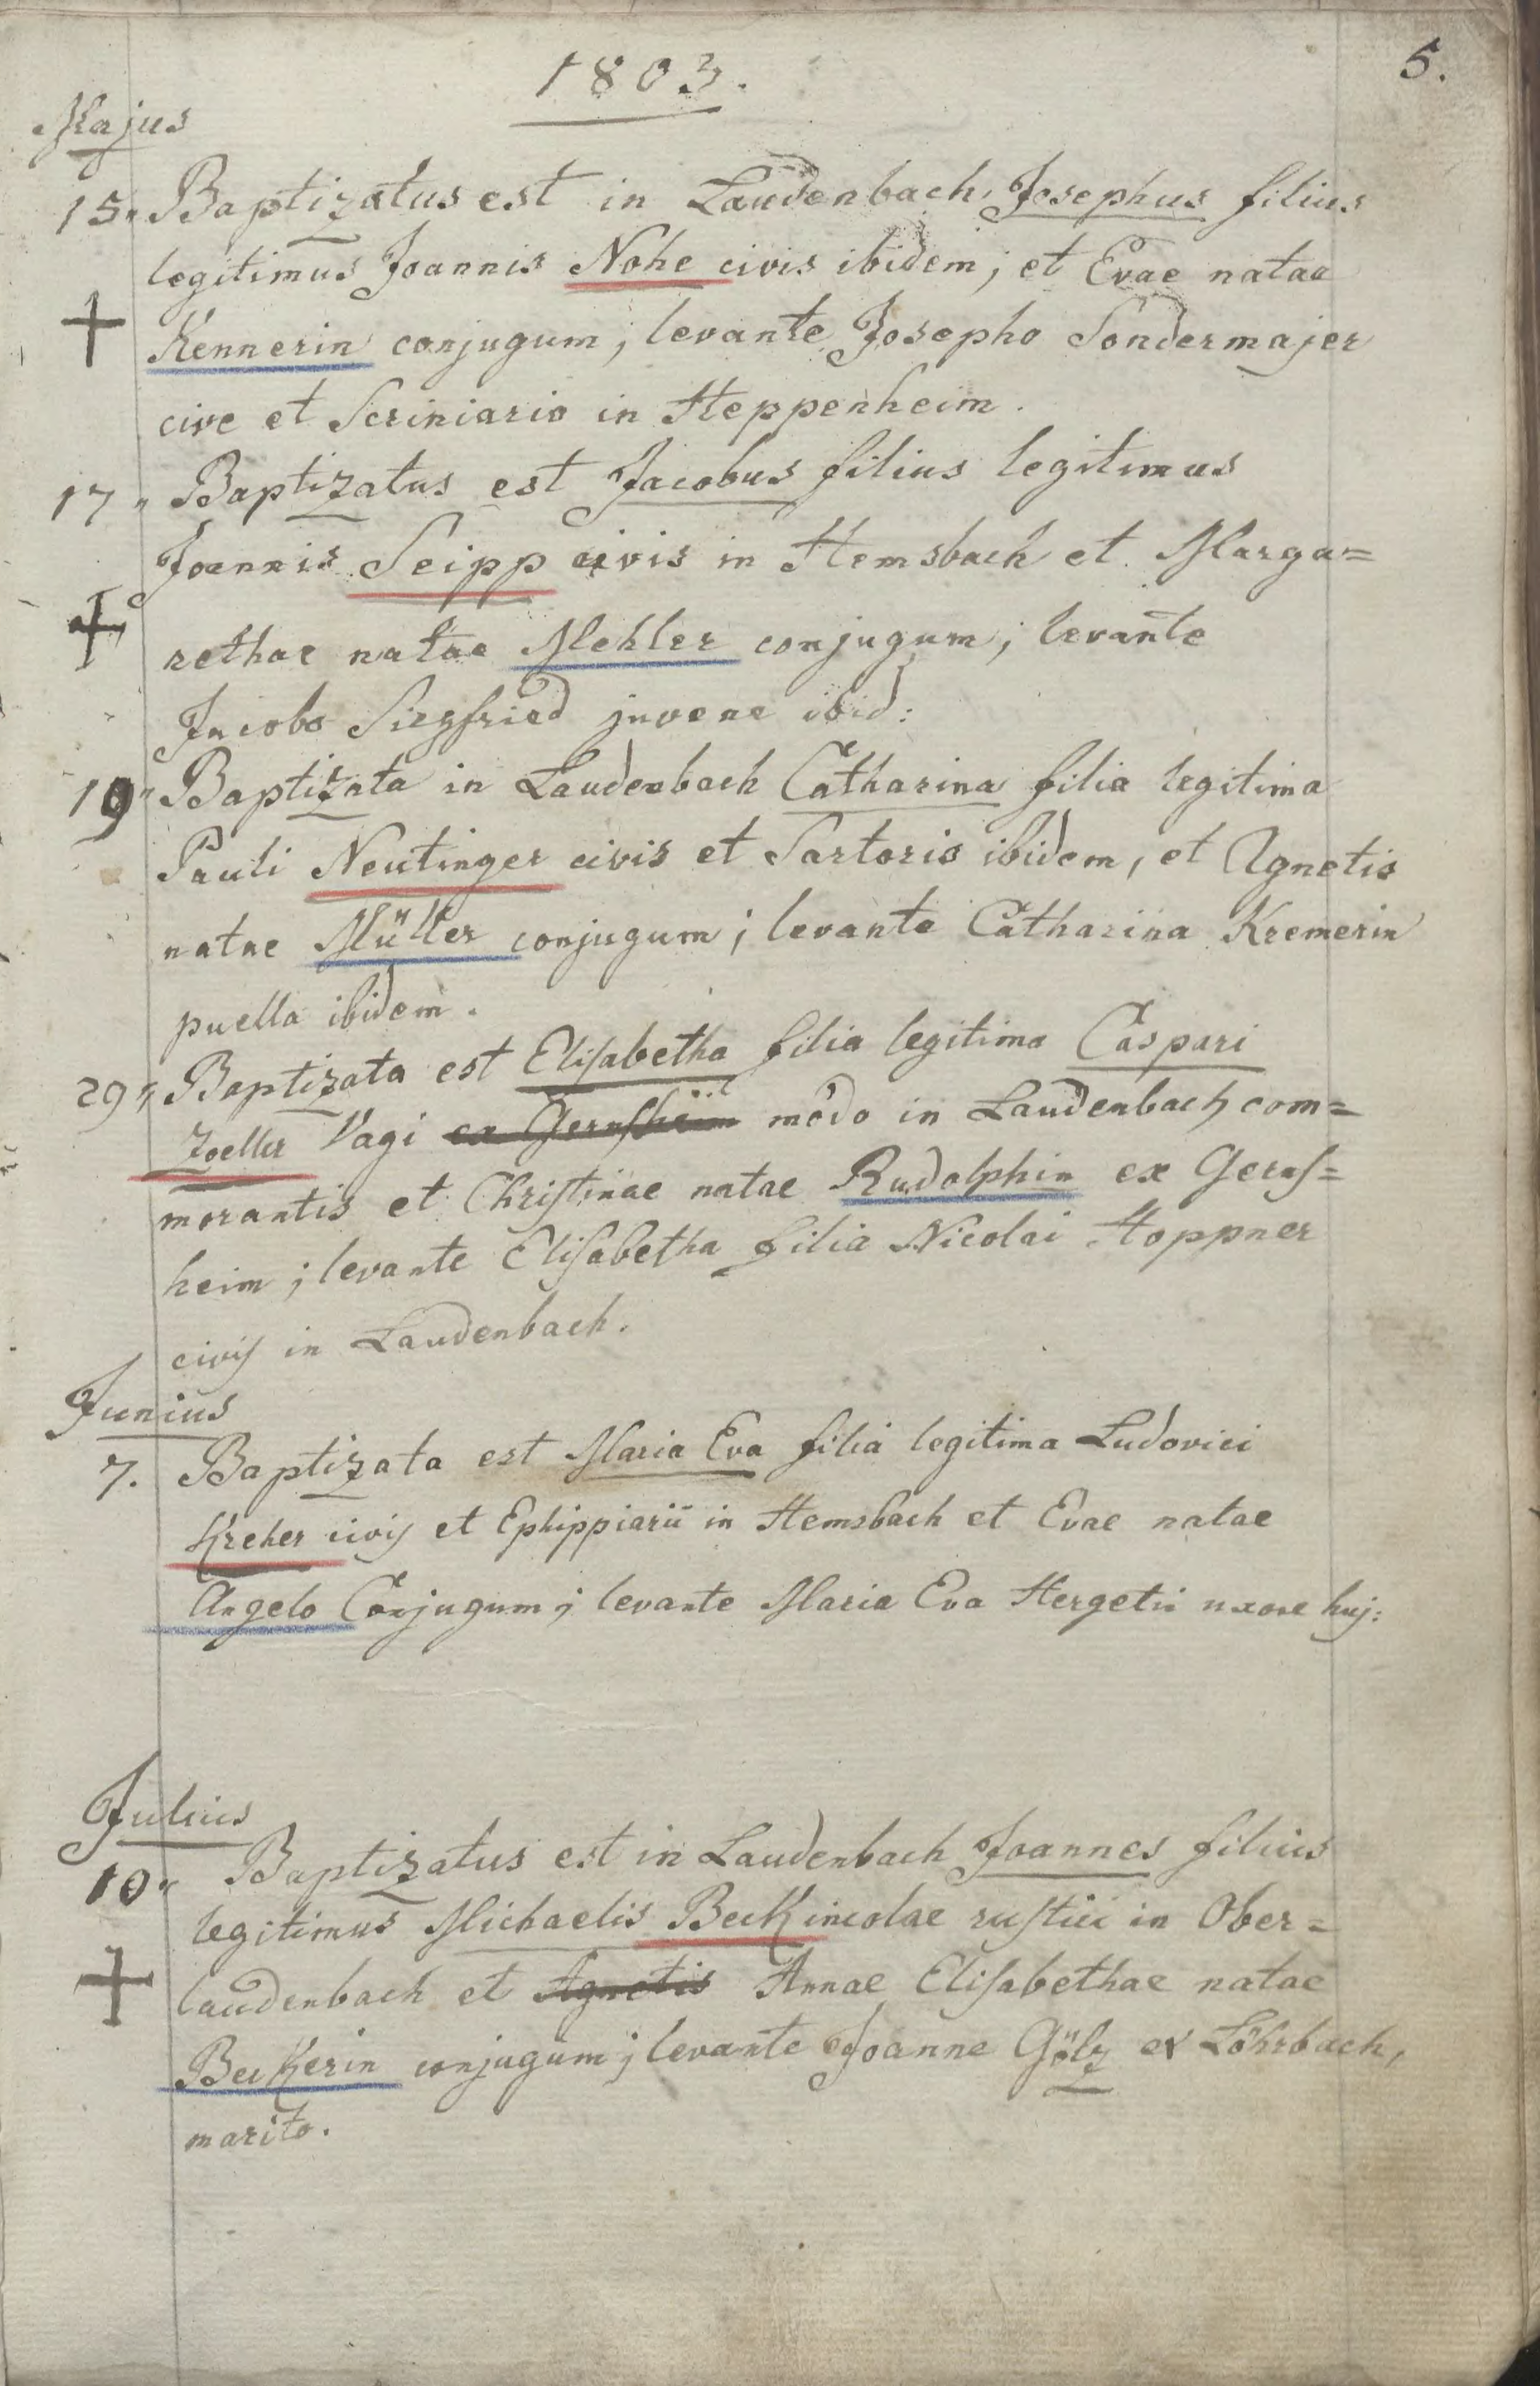 1803.
5.
Majus
15" Baptizatus est in Laudenbach Josephus filius
legitimus Joannis Nohe civis ibidem; et Evae natae
Kennerin conjugum; levante Josepho Sondermajer
cive et Scriniario in Heppenheim.
17" Baptizatus est Jacobus filius legitimus
Joannis Seipp civis in Hemsbach et Marga=
rethae natae Mehler conjugum; levante
Jacobo Siegfried juvene ibid:
19" Baptizata in Laudenbach Catharina filia legitima
Pauli Neutinger civis et Sartoris ibidem, et Agnetis
natae Müller conjugum; levante Catharina Kremerin
puella ibidem.
29" Baptizata est Elisabetha filia legitima Caspari
Zoeller Vagi ex Gernsheim modo in Laudenbach com=
morantis et Christinae natae Rudolphin ex Gerns=
heim; levante Elisabetha filia Nicolai Hoppner
civis in Laudenbach.
Junius
7. Baptizata est Maria Eva filia legitima Ludovici
Kreher civis et Ephippiarii in Hemsbach et Evae natae
Angelo Conjugum; levante Maria Eva Hergetin uxore huj:
Julius
10" Baptizatus est in Laudenbach Joannes filius
legitimus Michaelis Beck incolae rustici in Ober=
laudenbach et Agnetis Annae Elisabethae natae
Beckerin conjugum; levante Joanne Gölz ex Löhrbach,
marito.